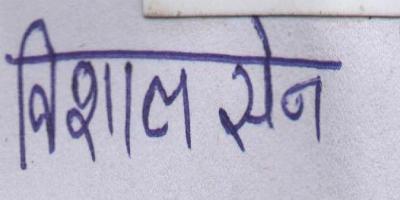 विशाल सेन